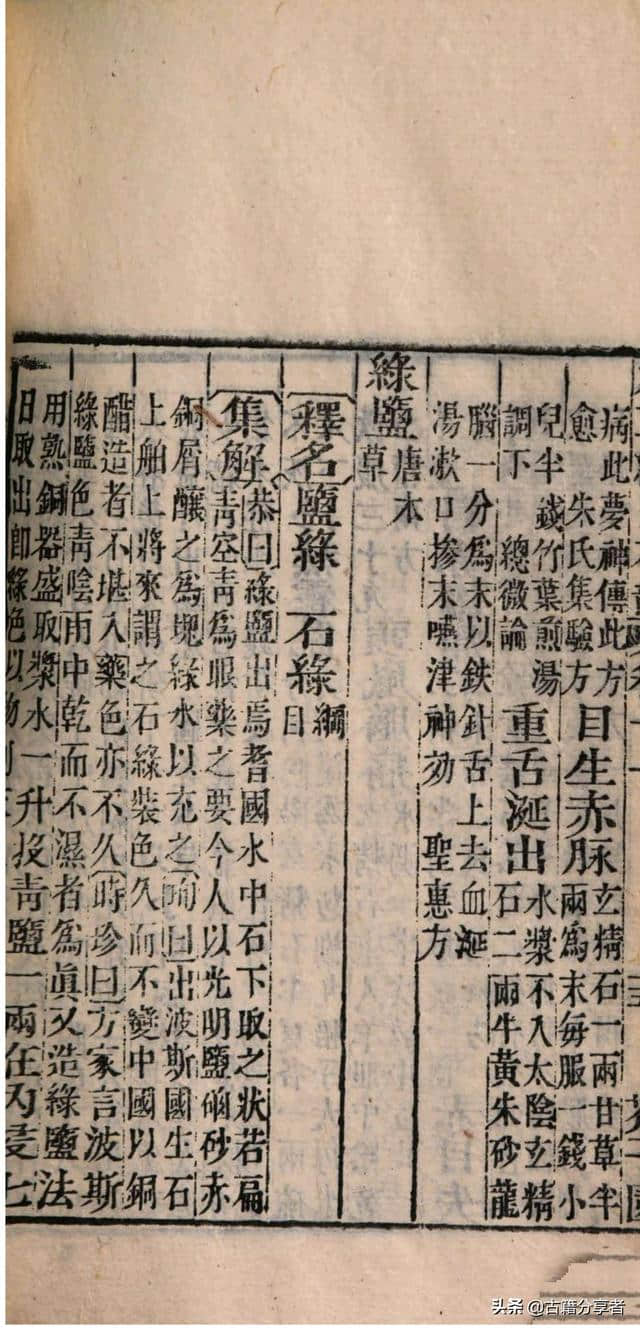 病此夢神傳此方
愈 朱氏集驗方
目生赤脉
玄精石一兩甘草半
兩爲末每服一錢小
兒半錢竹葉煎湯
調下 總微論
重舌涎出
水漿不入太陰玄精
石二兩牛黃朱砂龍
腦一分爲末以鉄針舌上去血涎
湯漱口摻末嚥津神効 聖惠方
綠鹽 唐本草
釋名 鹽綠 石綠 綱目
集解 恭曰綠鹽出焉耆國水中石下取之狀若扁
青空青爲眼藥之要今人以光明鹽硇砂赤
銅屑釀之爲塊綠水以充之珣曰出波斯國生石
上舶上將來謂之石綠裝色久而不變中國以銅
醋造者不堪入藥色亦不久時珍曰方家言波斯
綠鹽色青陰雨中乾而不濕者爲眞又造綠鹽法
用熟銅器盛取漿水一升投青鹽一兩在內浸七
日取出即綠色以物刮
头条 @古籍分享者